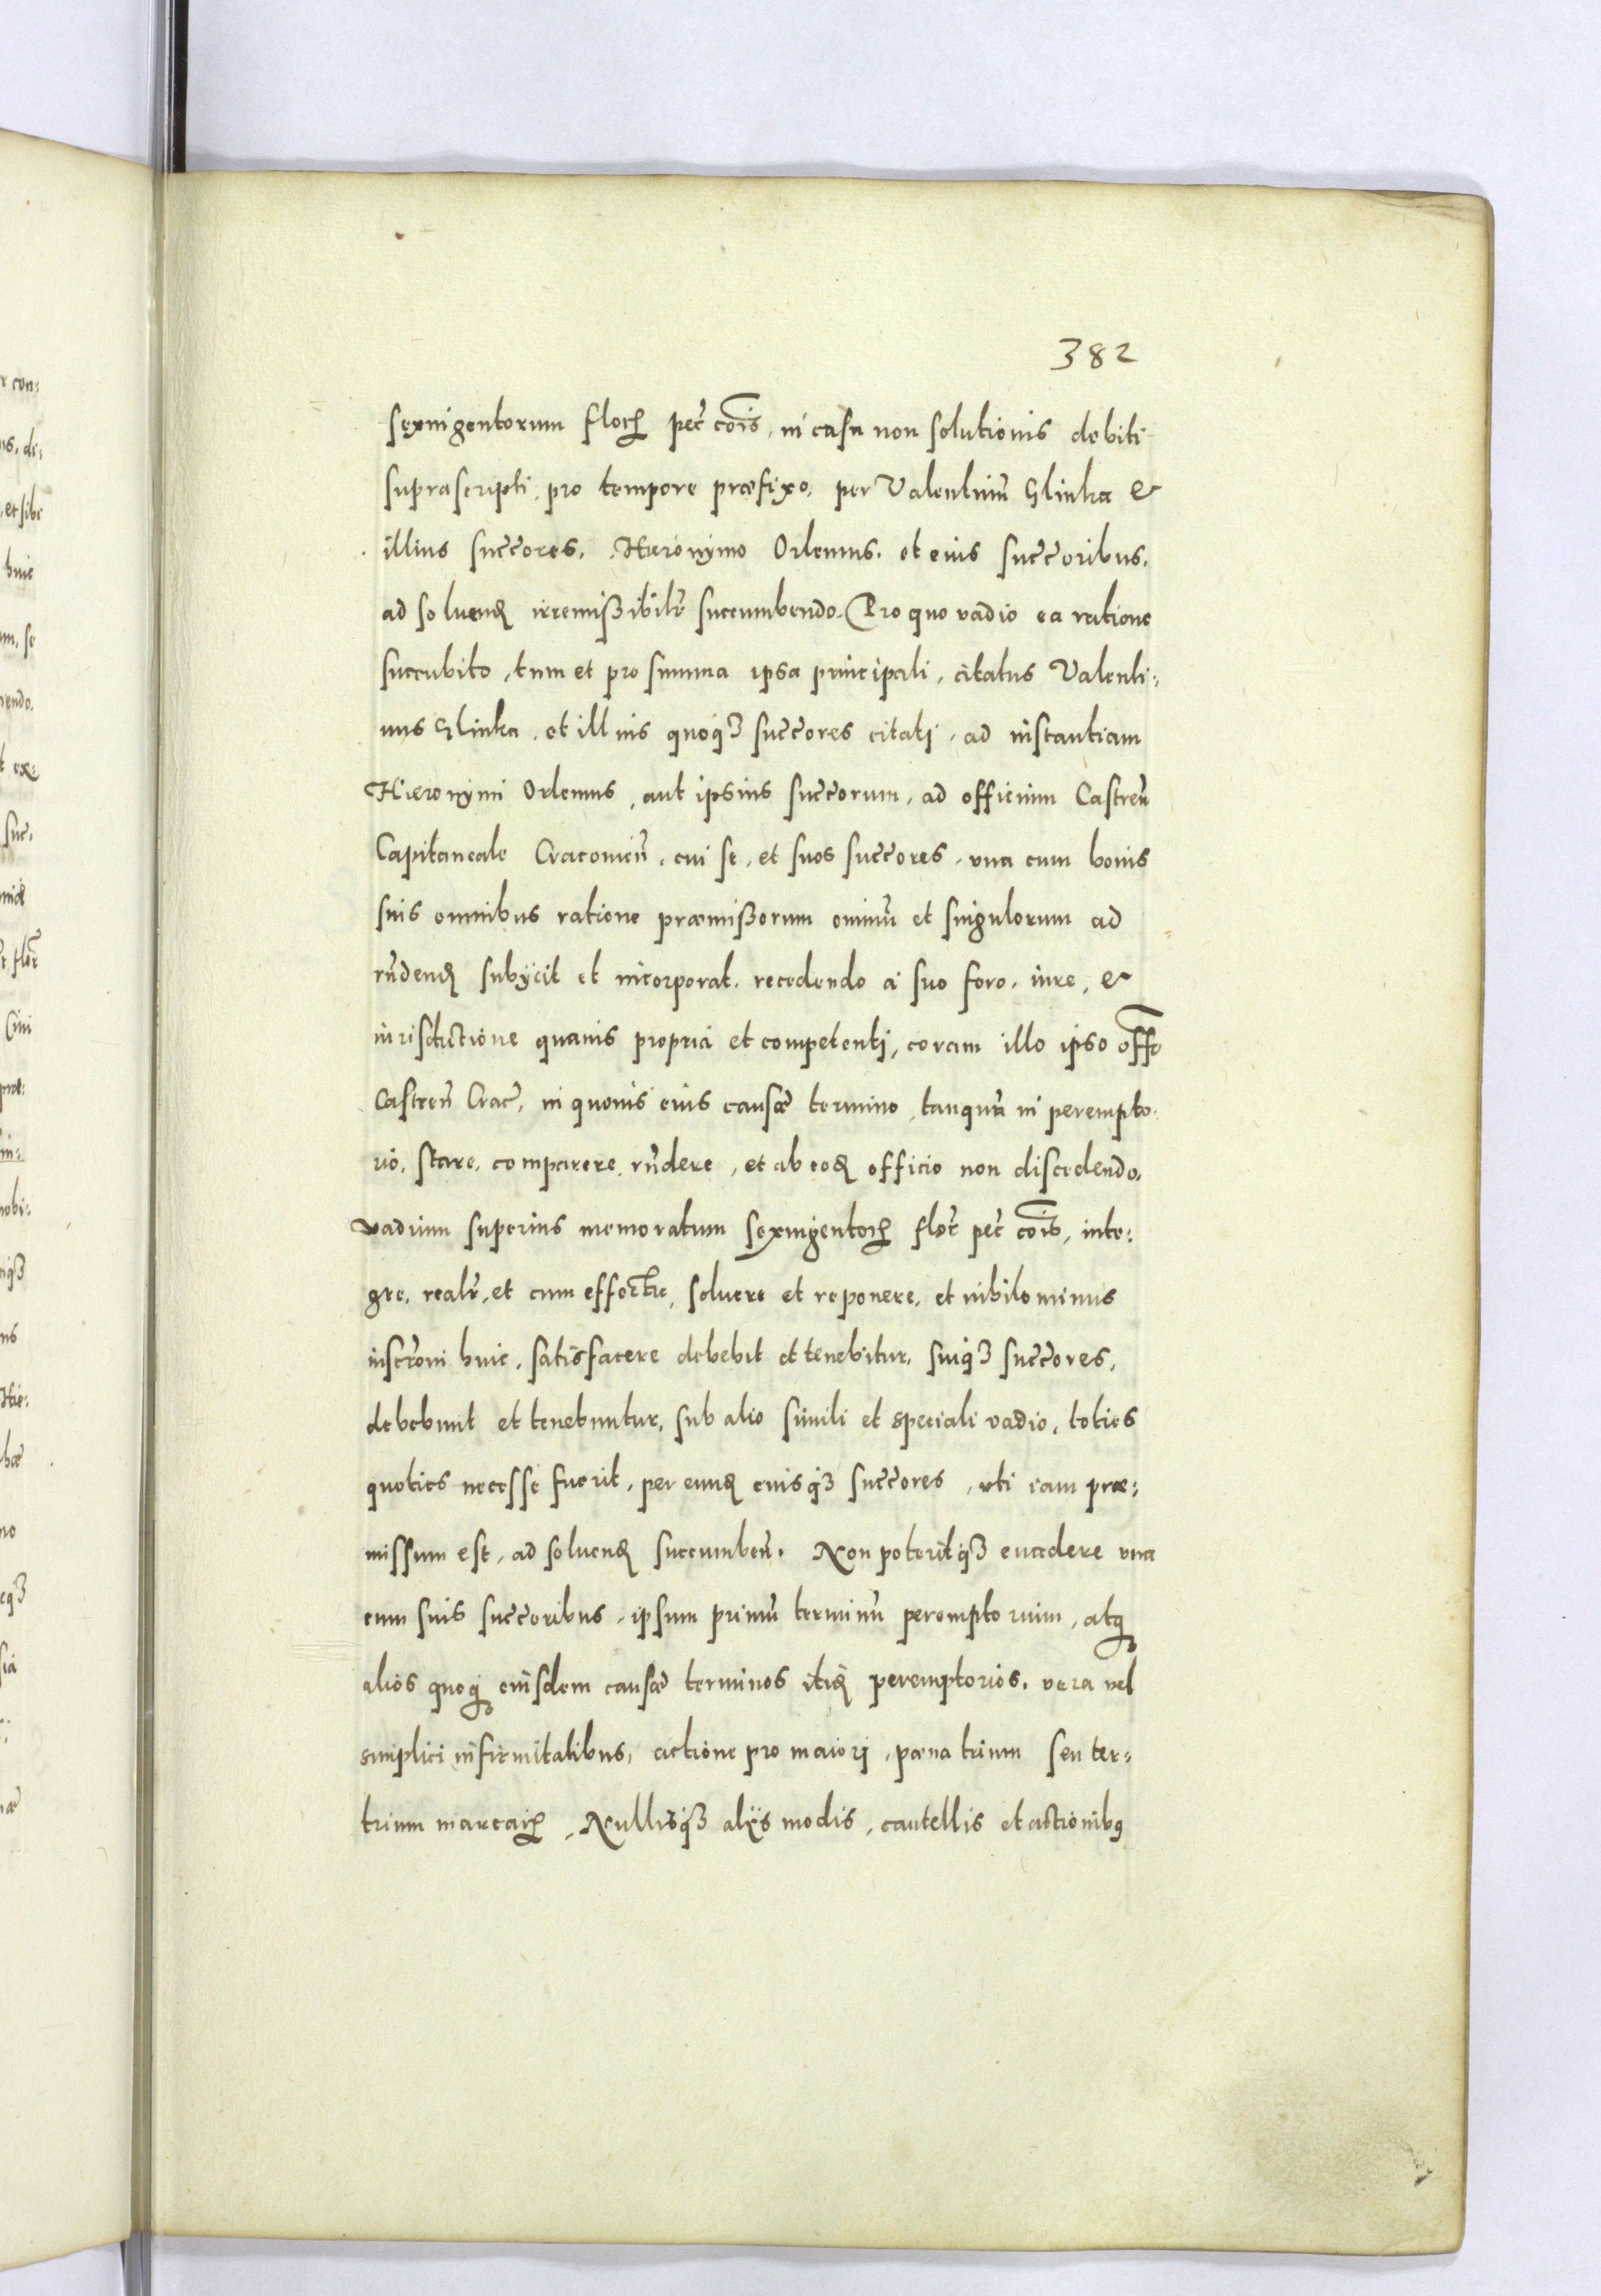 382
sexingentorum floꝝ pec̃ cõis, in casu non solutionis debiti
suprascripti, pro tempore præfixo, per Valentinũ Glinka &
illius succ̃ores, Hieronymo Orlemus, et eius succ̃oribus,
ad soluenđ irremißibilr̃ succumbendo. Pro quo vadio ea ratione
succubito, tum et pro summa ipsa principali, citatus Valenti:
nus Glinka, et illius quoqȝ succ̃ores citatj, ad instantiam
Hieronymi Orlemus, aut ipsius succ̃orum, ad officium Castreñ
Capitaneale Cracouieñ, cui se, et suos succ̃ores, vna cum bonis
suis omnibus ratione præmißorum omniũ et singulorum ad
rñdenđ subÿcit et incorporat, recedendo à suo foro, iure, &
iurisdictione quauis propria et competentj, coram illo ipso offo
Castreñ Crac̃, in quouis eius causæ termino, tanquã in perempto:
rio, stare, comparere, rñdere, et ab eođ officio non discedendo,
vadium superius memoratum sexingentoꝝ flor̃ pec̃ cõis, inte:
gre, realr̃, et cum effectu, soluere et reponere, et nihilominus
inscrõni huic, satisfacere debebit et tenebitur, suiqȝ succ̃ores,
debebunt et tenebuntur, sub alio simili et speciali vadio, toties
quoties necesse fuerit, per eunđ eiusqȝ succ̃ores, vti iam præ:
missum est, ad soluenđ succumbeñ. Non poteritqȝ euadere vna
cum suis succ̃oribus, ipsum primũ terminũ peremptorium, atqȝ
alios quoqȝ eiusdem causæ terminos itiđ peremptorios, vera vel
simplici infirmitatibus, actione pro maiorj, pœna trium seu ter:
trium marcaꝝ, Nullisqȝ alÿs modis, cautellis et actionibꝰ